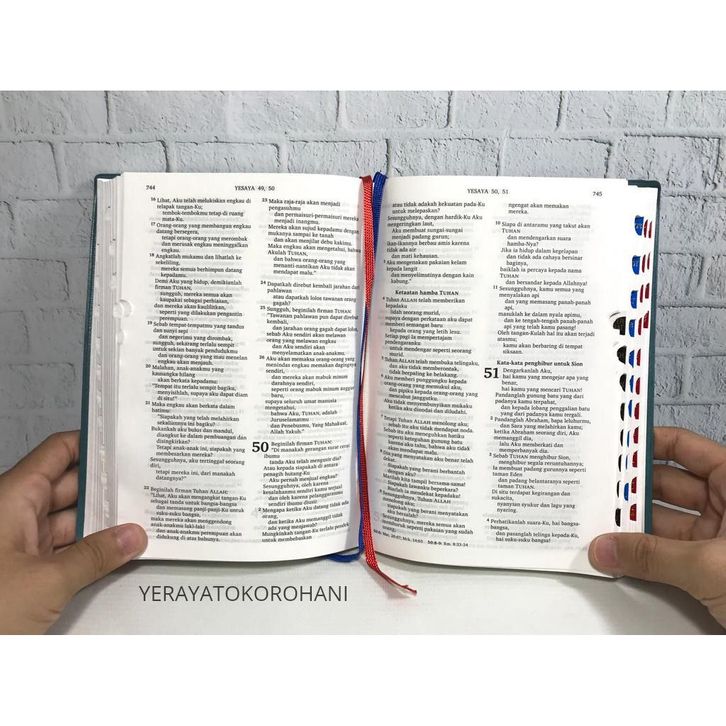 744
YESAYA 49, 50
16 Lihat, Aku telah melukiskan engkau di
telapak tangan-Ku;
tembok-tembokmu tetap di ruang
mata-Ku.
17 Orang-orang yang membangun engkau
datang bersegera,
tetapi orang-orang yang merombak
dan merusak engkau meninggalkan
engkau.
18 Angkatlah mukamu dan lihatlah ke
sekeliling,
mereka semua berhimpun datang
kepadamu.
Demi Aku yang hidup, demikianlah
firman TUHAN,
sungguh, mereka semua akan
kaupakai sebagai perhiasan,
dan mereka akan kaulilitkan,
seperti yang dilakukan pengantin
perempuan.
19 Sebab tempat-tempatmu yang tandus
dan sunyi sepi
dan negerimu yang dirombak,
sungguh, sekarang terlalu sempit
untuk sekian banyak pendudukmu
dan orang-orang yang mau menelan
engkau akan menjauh.
20 Malahan, anak-anakmu yang
kausangka hilang
akan berkata kepadamu:
"Tempat itu terlalu sempit bagiku,
menyisihlah, supaya aku dapat diam
di situ!"
21 Maka engkau akan berkata dalam
hatimu:
"Siapakah yang telah melahirkan
sekaliannya ini bagiku?
Bukankah aku bulus dan mandul,
diangkut ke dalam pembuangan dan
disingkirkan?
Tetapi anak-anak ini, siapakah yang
membesarkan mereka?
Sesungguhnya, aku tertinggal seorang
diri,
tetapi mereka ini, dari manakah
datangnya?"
22 Beginilah firman Tuhan ALLAH:
"Lihat, Aku akan mengangkat tangan-Ku
sebagai tanda untuk bangsa-bangsa
dan memasang panji-panji-Ku untuk
suku-suku bangsa,
maka mereka akan menggendong
anak-anakmu laki-laki
dan anak-anakmu perempuan akan
didukung di atas bahunya.
23 Maka raja-raja akan menjadi
pengasuhmu
dan permaisuri-permaisuri mereka
menjadi inangmu.
Mereka akan sujud kepadamu dengan
mukanya sampai ke tanah
dan akan menjilat debu kakimu.
Maka engkau akan mengetahui, bahwa
Akulah TUHAN,
dan bahwa orang-orang yang
menanti-nantikan Aku tidak akan
mendapat malu."
24 Dapatkah direbut kembali jarahan dari
pahlawan
atau dapatkah lolos tawanan orang
gagah?
25 Sungguh, beginilah firman TUHAN:
"Tawanan pahlawan pun dapat direbut
kembali,
dan jarahan orang gagah dapat lolos,
sebab Aku sendiri akan melawan orang
yang melawan engkau
dan Aku sendiri akan
menyelamatkan anak-anakmu.
26 Aku akan memaksa orang-orang yang
menindas engkau memakan dagingnya
sendiri,
dan mereka akan mabuk minum
darahnya sendiri,
seperti orang mabuk minum anggur
baru,
supaya seluruh umat manusia
mengetahui,
bahwa Aku, TUHAN, adalah
Juruselamatmu
dan Penebusmu, Yang Mahakuat,
Allah Yakub."
50 Beginilah firman TUHAN:
"Di manakah gerangan surat cerai
ibumu
tanda Aku telah mengusir dia?
Atau kepada siapakah di antara
penagih hutang-Ku
Aku pernah menjual engkau?
Sesungguhnya, oleh karena
kesalahanmu sendiri kamu terjual
dan oleh karena pelanggaranmu
sendiri ibumu diusir.
2 Mengapa ketika Aku datang tidak ada
orang,
dan ketika Aku memanggil tidak
ada yang menjawab?
Mungkinkah tangan-Ku terlalu pendek
untuk membebaskan
YESAYA 50, 51
745
atau tidak adakah kekuatan pada-Ku
untuk melepaskan?
Sesungguhnya, dengan hardik-Ku Aku
mengeringkan laut,
Aku membuat sungai-sungai
menjadi padang gurun;
ikan-ikannya berbau amis karena
tidak ada air
dan mati kehausan.
3 Aku mengenakan pakaian kelam
kepada langit
dan menyelimutinya dengan kain
kabung."
Ketaatan hamba TUHAN
4 Tuhan ALLAH telah memberikan
kepadaku
lidah seorang murid,
supaya dengan perkataan aku dapat
memberi semangat baru
kepada orang yang letih lesu.
Setiap pagi Ia mempertajam
pendengaranku
untuk mendengar seperti seorang
murid.
5 Tuhan ALLAH telah membuka telingaku,
dan aku tidak memberontak,
tidak berpaling ke belakang.
6 Aku memberi punggungku kepada
orang-orang yang memukul aku,
dan pipiku kepada orang-orang yang
mencabut janggutku.
Aku tidak menyembunyikan mukaku
ketika aku dinodai dan diludahi.
7 Tetapi Tuhan ALLAH menolong aku;
sebab itu aku tidak mendapat noda.
Sebab itu aku meneguhkan hatiku
seperti keteguhan gunung batu
dan aku tahu, bahwa aku tidak akan
mendapat malu.
8 Dia yang menyatakan aku benar telah
dekat.
Siapakah yang berani berbantah
dengan aku?
Marilah kita tampil bersama-sama!
Siapakah lawanku berperkara?
Biarlah ia mendekat kepadaku!
9 Sesungguhnya, Tuhan ALLAH
menolong aku;
siapakah yang berani menyatakan
aku bersalah?
Sesungguhnya, mereka semua akan
memburuk seperti pakaian yang sudah
ngengat akan memakan
mereka.
10 Siapa di antaramu yang takut akan
TUHAN
dan mendengarkan suara
hamba-Nya?
Jika ia hidup dalam kegelapan
dan tidak ada cahaya bersinar
baginya,
baiklah ia percaya kepada nama
TUHAN
dan bersandar kepada Allahnya!
11 Sesungguhnya, kamu semua yang
menyalakan api
dan yang memasang panah-panah
api,
masuklah ke dalam nyala apimu,
dan ke tengah-tengah panah-panah
api yang telah kamu pasang!
Oleh tangan-Kulah hal itu akan terjadi
atasmu;
kamu akan berbaring di tempat
siksaan.
Kata-kata penghibur untuk Sion
51 Dengarkanlah Aku,
hai kamu yang mengejar apa yang
benar,
hai kamu yang mencari TUHAN!
Pandanglah gunung batu yang dari
padanya kamu terpahat,
dan kepada lobang penggalian batu
yang dari padanya kamu tergali.
2 Pandanglah Abraham, bapa leluhurmu,
dan Sara yang melahirkan kamu;
ketika Abraham seorang diri, Aku
memanggil dia,
lalu Aku memberkati dan
memperbanyak dia.
3 Sebab TUHAN menghibur Sion,
menghibur segala reruntuhannya;
Ia membuat padang gurunnya seperti
taman Eden
dan padang belantaranya seperti
taman TUHAN.
Di situ terdapat kegirangan dan
sukacita,
nyanyian syukur dan lagu yang
nyaring.
4 Perhatikanlah suara-Ku, hai bangsa-
bangsa,
dan pasanglah telinga kepada-Ku,
hai suku-suku bangsa!
YERAYATOKOROHANI